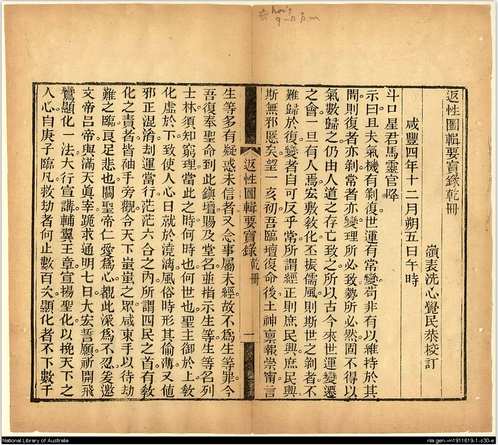 返性圖輯要寶錄乾冊
嶺表洗心覺民恭校訂
咸豐四年十二月朔五日午時
斗口星君馬靈官降
示曰且夫氣機有剝復世運有常變苟非有以維持於其
間則復者亦剝常者亦變理所必致勢所必然固不得以
氣數之仍由人道之存亡致之所以古今來世運變遷
之會一旦有人焉宏敷敎化丕振儒風則斯世之剝者不
難歸於復變者自可反乎常所謂經正則庶民興庶民興
斯無邪慝矣望一亥初吾臨壇復命後土神稟報崇甯言
返性圖輯要寶錄 乾冊 一
生等多有疑惑未信者又事屬未經故不為生等罪今
吾復奉聖命到此鎮壇賜及堂名並指示生等生等名列
士林須知窮理當此之時何時也何世也聖主御於上敎
化虛於下致使人心日就於澆漓風俗時形其偷薄又値
邪正混淆刼運當行茫茫六合之內所謂四民之首有敎
化之責者皆袖手旁觀令天下蚩蚩之眾咸束手以待劫
難之臨良足悲也關聖帝仁愛爲心覩此深爲不忍爰邀
文帝呂帝與滿天眞宰跪求通明七日大宏誓願祈開飛
鸞顯化一法大行宣講輔翼王章宣揚聖化以挽天下之
人心自庚子臨凡救劫者何止數百次顯化者不下數千
National Library of Australia